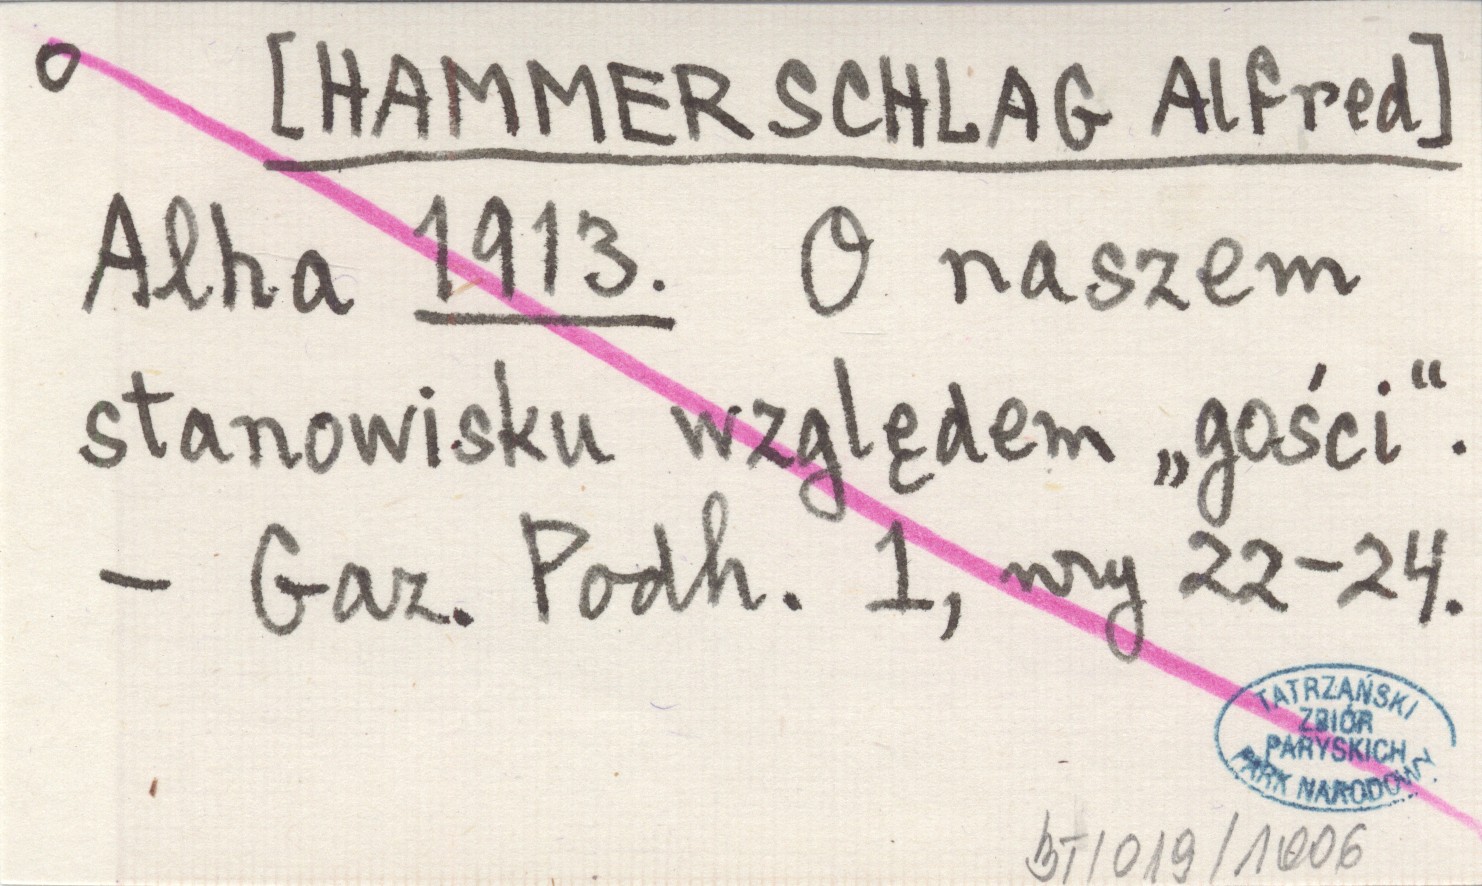 [HAMMERSCHLAG Alfred]
Alha 1913. O naszem
stanowisku względem „gości“.
— Gaz. Podh. 1, nry 22-24.
TATRZAŃSKI
ZBIÓR
PARYSKICH
PARK NARODOWY
BT/019/1006